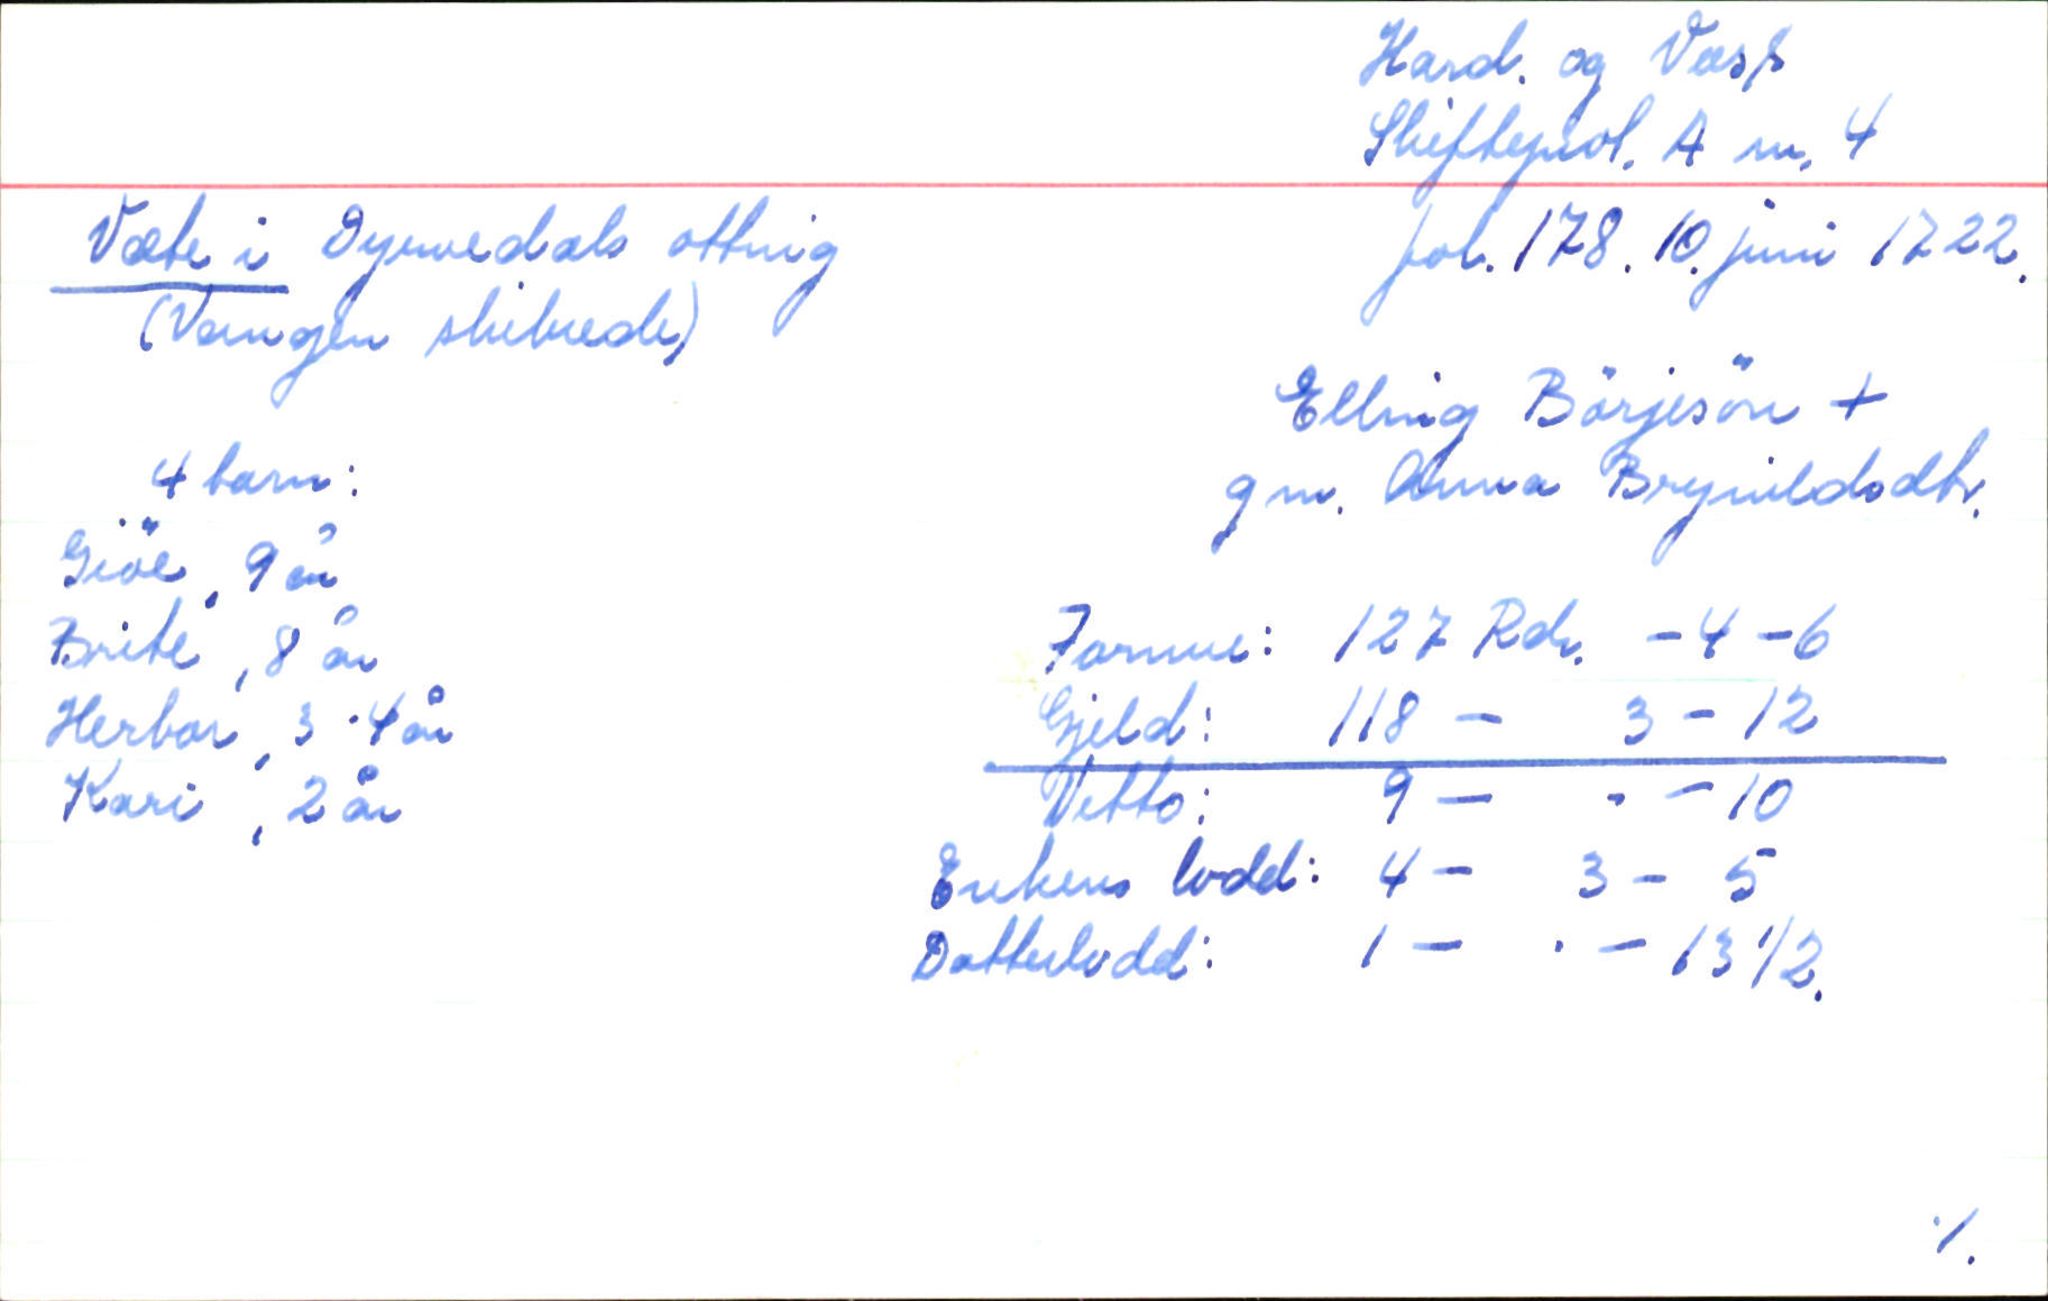 Hard. og Voss
Skifteprot. A nr. 4
fol. 178. 10. juni 1722.
Væte i Dyrvedals otting
(Vangen skibrede)
Elling Börjesön +
gm. Anna Brynildsdtr.
4 barn:
Giöe, 9 år
Brite, 8 år
Herbor, 3-4 år
Kari, 2 år
Formue: 127 Rdr. - 4 - 6
Gjeld: 118 - 3 - 12
Netto: 9 - · - 10
Enkens lodd: 4 - 3 - 5
Datterlodd: 1 - · - 13 1/2.
·/.